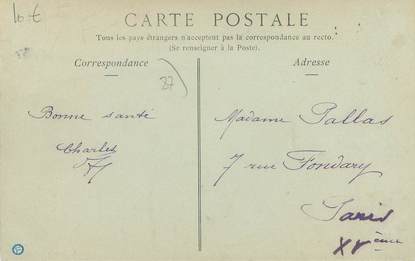 10 €
CARTE POSTALE
Tous les pays étrangers n'acceptent pas la correspondance au recto.
(Se renseigner à la Poste).
Correspondance
Adresse
37
Bonne santé
Charles
Madame Pallas
7 rue Fondary
Paris
XVème